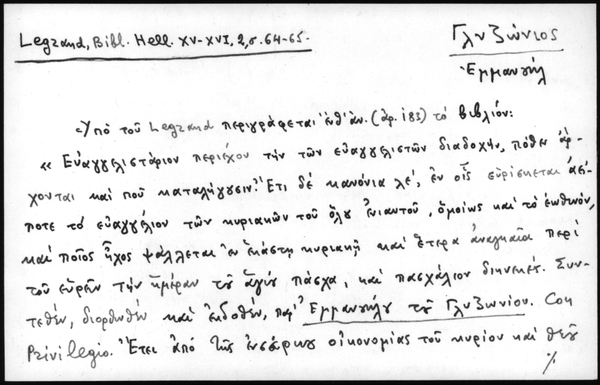 Legrand, Bibl. Hell. XV-XVI, 2, σ. 64-65.
Γλυζώνιος
Ἐμμανουήλ
Ὑπὸ τοῦ Legrand περιγράφεται ἐνθ' ἀν. (ἀρ. 183) τὸ βιβλίον:
« Εὐαγγελιστάριον περιέχον τὴν τῶν εὐαγγελιστῶν διαδοχήν, πόθεν ἄρ-
χονται καὶ ποῦ καταλήγουσιν. Ἔτι δὲ κανόνια λε', ἐν οἷς εὑρίσκεται ἀεί-
ποτε τὸ εὐαγγέλιον τῶν κυριακῶν τοῦ ὅλου ἐνιαυτοῦ, ὁμοίως καὶ τὸ ἑωθινόν,
καὶ ποῖος ἦχος ψάλλεται ἐν ἑκάστῃ κυριακῇ καὶ ἕτερα ἀναγκαῖα περὶ
τοῦ εὑρεῖν τὴν ἡμέραν τοῦ ἁγίου πάσχα, καὶ πασχάλιον διηνεκές. Συν-
τεθὲν, διορθωθὲν καὶ ἐκδοθὲν, παρ' Ἐμμανουήλου τοῦ Γλυζωνίου. Con
Privilegio. Ἔτει ἀπὸ τῆς ἐνσάρκου οἰκονομίας τοῦ κυρίου καὶ θεοῦ
./.